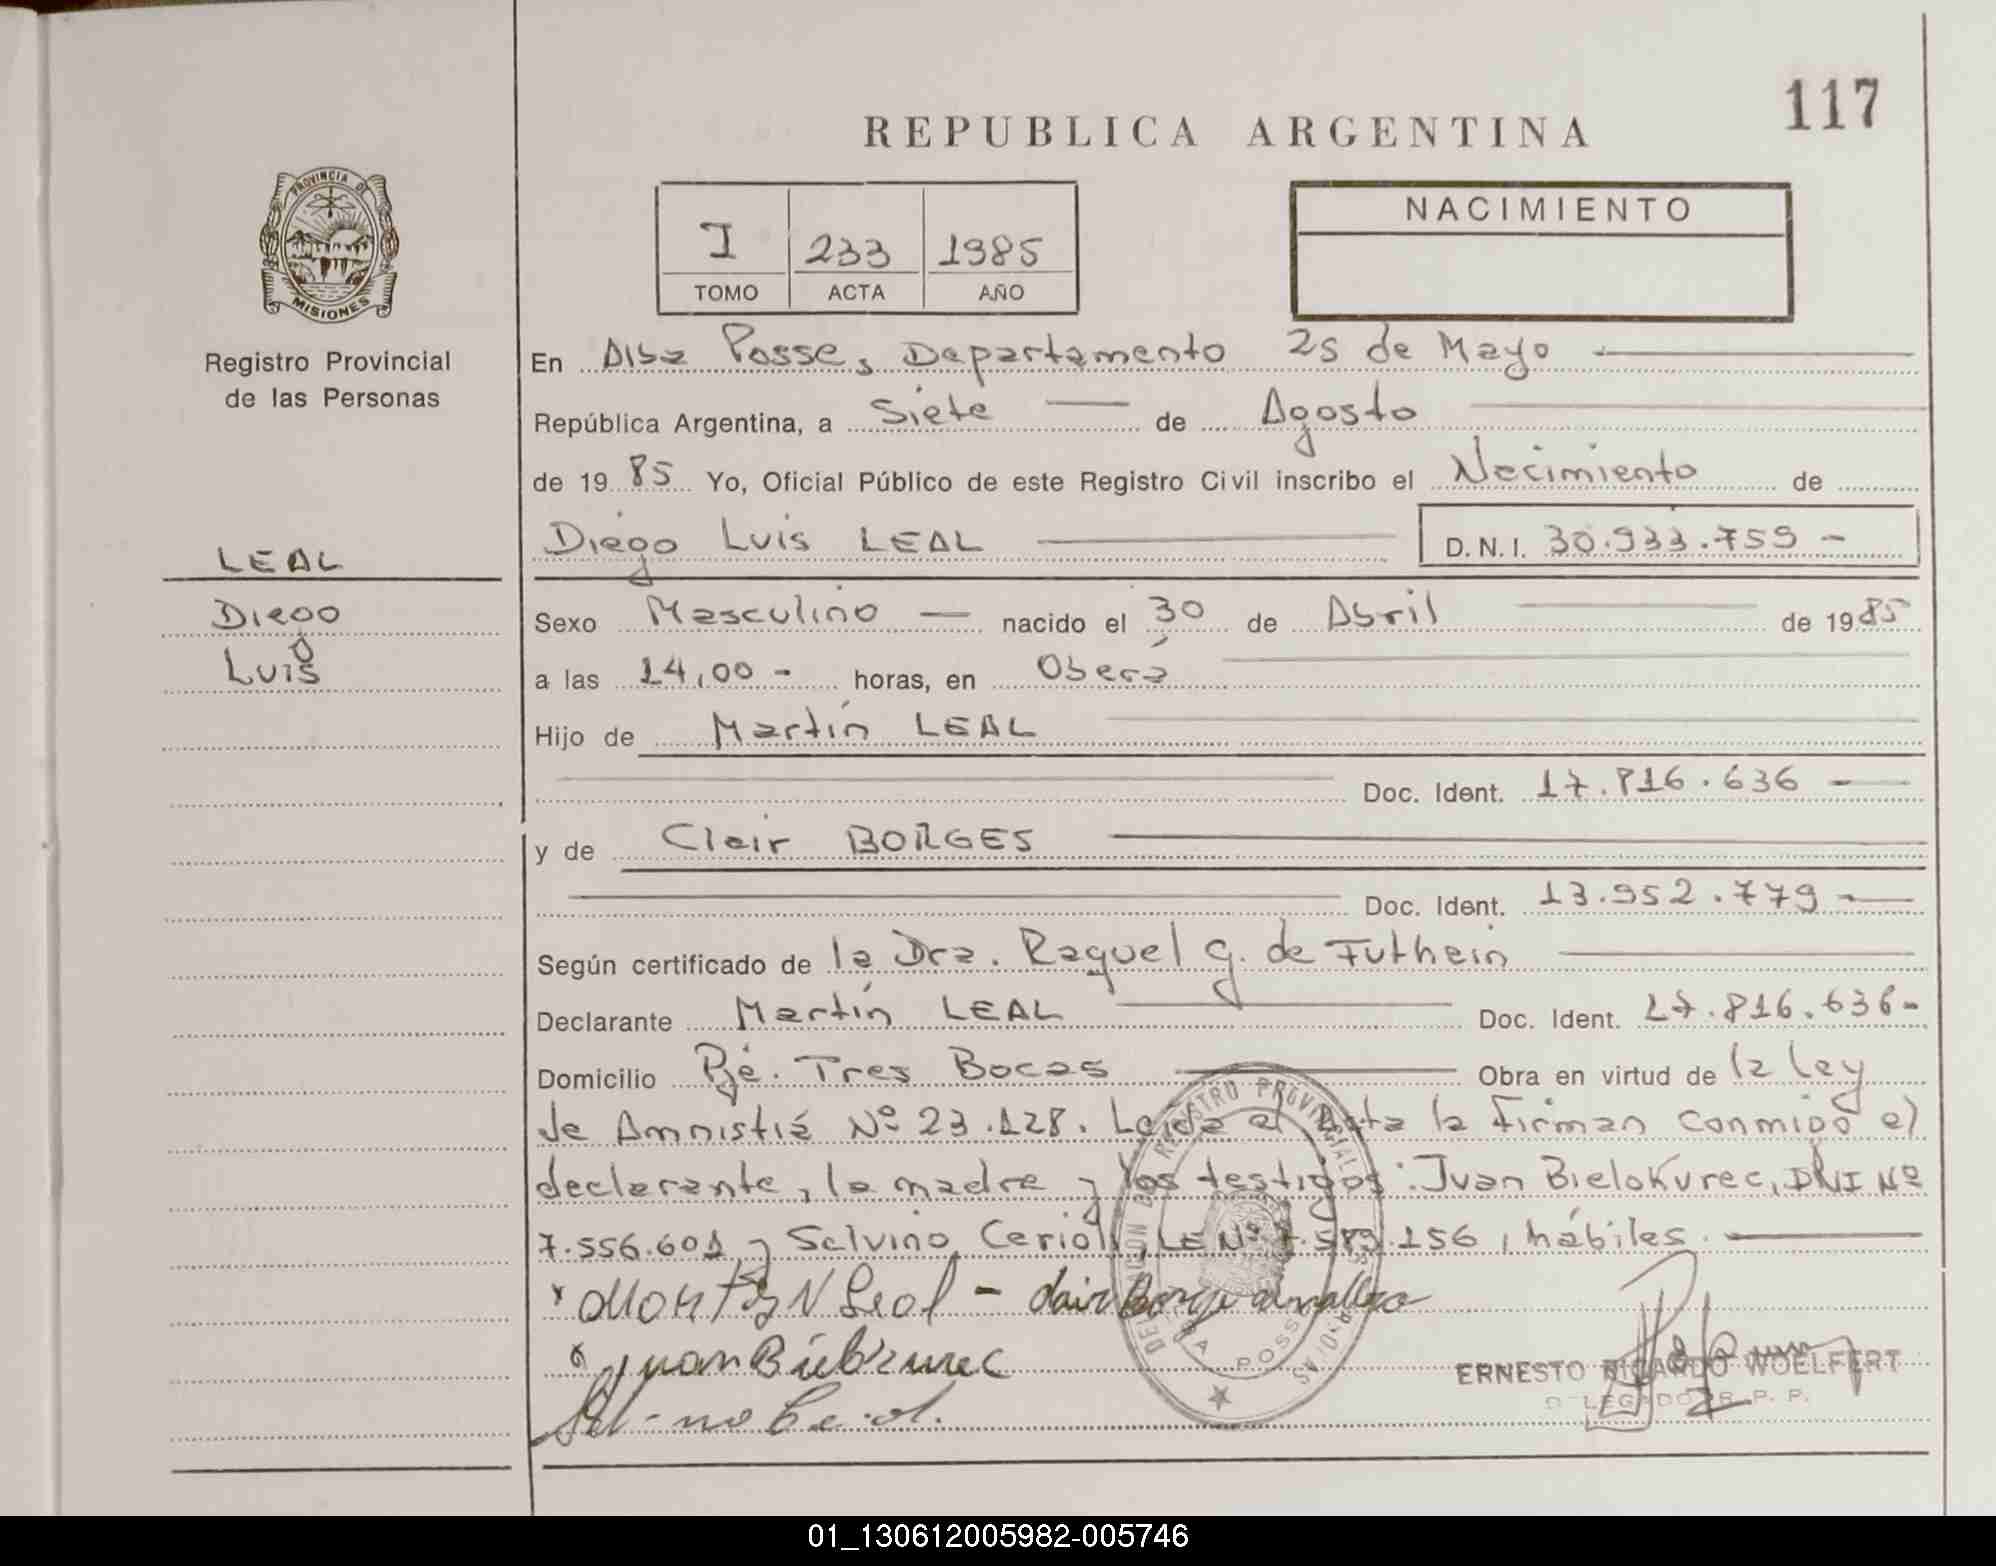 117
REPUBLICA ARGENTINA
PROVINCIA DE
MISIONES
Registro Provincial
de las Personas
I 233 1985
TOMO ACTA AÑO
NACIMIENTO
En Alba Posse, Departamento 25 de Mayo
República Argentina, a Siete de Agosto
de 1985 Yo, Oficial Público de este Registro Civil inscribo el Nacimiento de
Diego Luis LEAL D.N.I. 30.933.759 -
LEAL
Diego
Luis
Sexo Masculino nacido el 30 de Abril de 1985
a las 14,00 - horas, en Oberá
Hijo de Martín LEAL
Doc. Ident. 17.816.636 -
y de Clair BORGES
Doc. Ident. 13.952.779 -
Según certificado de la Dra. Raquel G. de Futhein
Declarante Martín LEAL Doc. Ident. 17.816.636-
Domicilio Pje. Tres Bocas Obra en virtud de la Ley
de Amnistía Nº 23.128. Leída el Acta la firman conmigo el
declarante, la madre y los testigos: Juan Bielokurec, DNI Nº
7.556.601 y Salvino Cerioli, LE Nº .589.156, hábiles.
Martin Leal - Clair Borges
Juan Bielokurec
DELEGACION DEL REGISTRO PROVINCIAL DE LAS PERSONAS
ALBA POSSE
ERNESTO RICARDO WOELFERT
DELEGADO R. P. P.
01_130612005982-005746